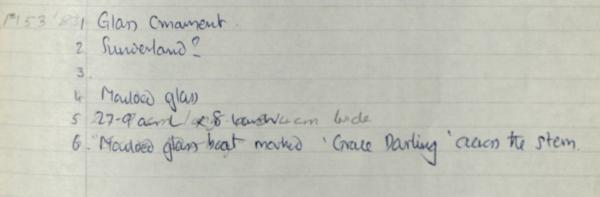 1 Glass Ornament.
2 Sunderland?
3.
4 Moulded glass
5 27.9 cm wide
6. Moulded glass boat marked 'Grace Darling' across the stern.